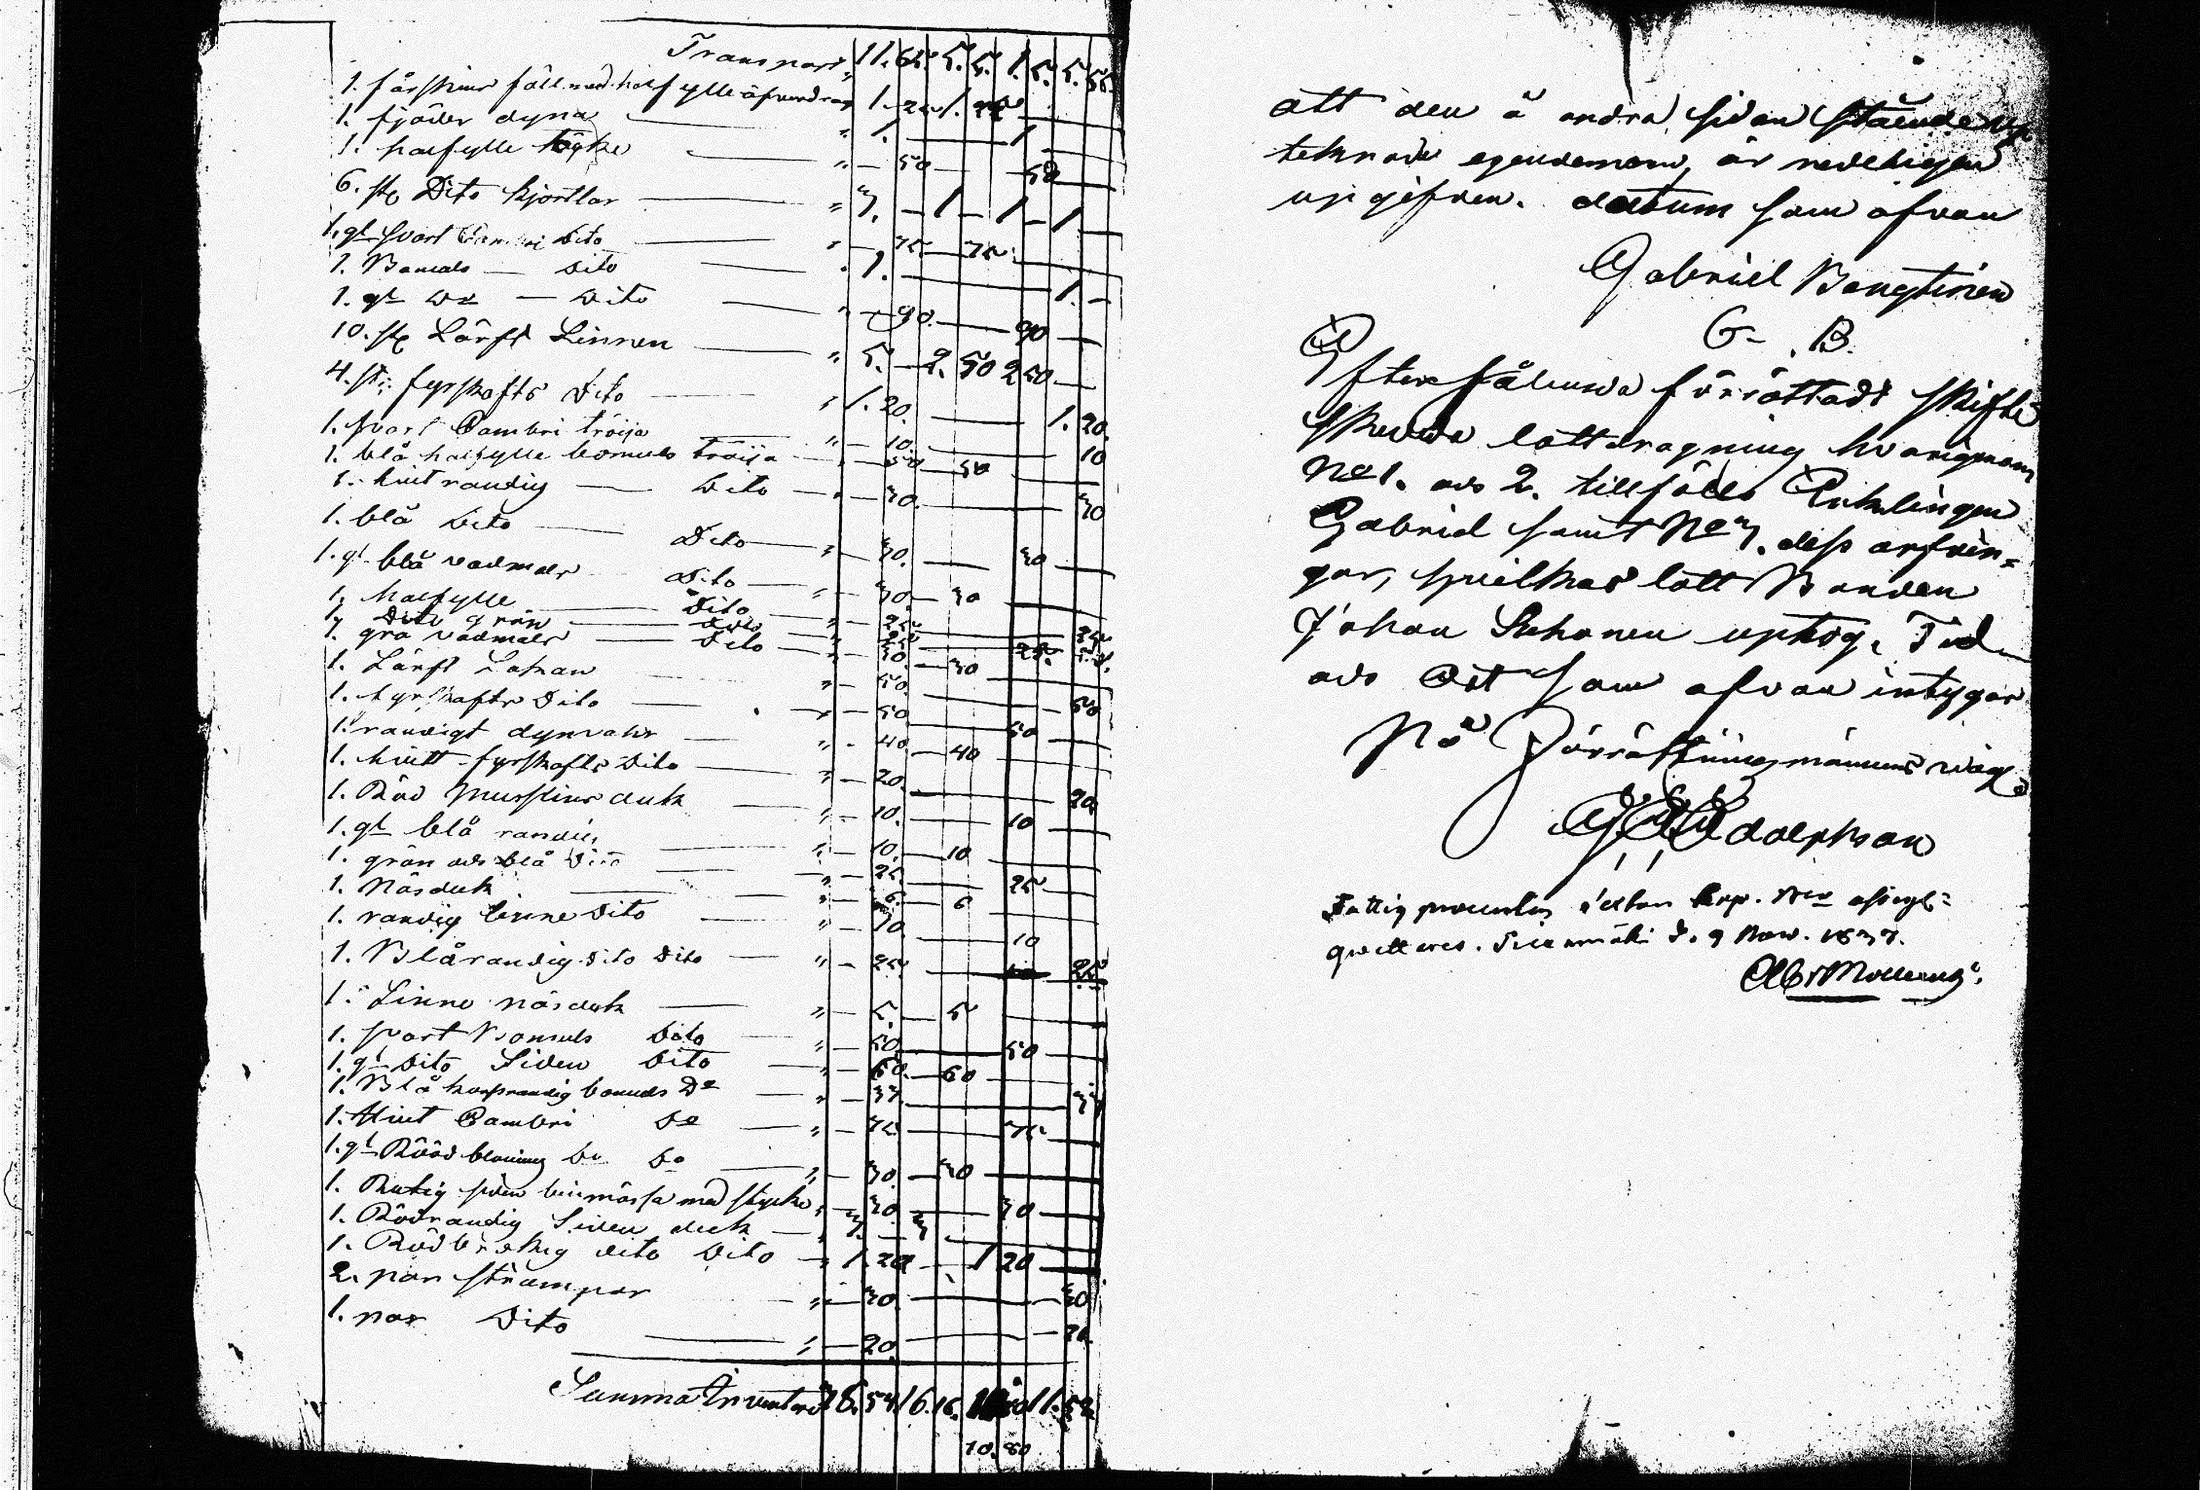 Transport " 11. 65. 5. 5. 1. 5. 5. 55.
1. fårskins fäll med halfylle öfverdrag 1. 25 1. 25
1. fjäder dyna " 1. 1
1. halfylle täcke " 50 50
6. st. Dito kjortlar " 3. 1 1 1
1. gl svart Cambri Dito " 75 75
1. Bomuls Dito " 1. 1.
1. gl De Dito " 90. 90
10. st. Lärft Linnen " 5. 2. 50 2 50
4. st. fyrskafts Dito " 1. 20. 1. 20.
1. svart Cambri tröija " 10. 10
1. blå halfylle bomuls tröija " 50 50
1. hvit randig Dito " 30. 30
1. blå Dito Dito " 30. 30
1. gl blå vadmals Dito " 30. 30
1. halfylle Dito " 25 25
1. Dito grön Dito " 25 25.
1. grå vadmals Dito " 30.
1. Lärft Lakan " 50. 50
1. fyrskafts Dito " 50. 50
1. randigt dynvahr " 40. 40
1. hvitt fyrskafts Dito " 20. 20
1. Röd Musslins duk " 10. 10
1. gl blå randig " 10. 10
1. grön och blå Dito " 25. 25
1. Näsduk " 6. 6
1. randig linne Dito " 10 10
1. Blårandig Dito Dito " 25 25
1. Linne näsduk " 5. 5
1. svart Bomuls Dito " 50 50
1. gl Dito Siden Dito " 60. 60
1. Blå bomuls De " 33. 33
1. Hvit Cambri De " 75. 75
1. gl Röd blommig De De " 30. 30
1. Rutig siden binmössa med stycke " 30. 30
1. Rödrandig Siden duk 3. 3
1. Röd brokig dito Dito 1. 20 1 20
2. par strumpor " 30. 30
1. par Dito " 20. 20
Summa Inventarium 38. 54 16. 16. 11. 52
10. 80
att den å andra sidan stående up
teknade egendomen, är redeligen
upgifven. datum som ofvan
Gabriel Bengtinen
G. B.
Efter sålunda förrättadt skifte
skedde lottdragning hvarigenom
No 1. och 2. tillföllo Enklingen
Gabriel samt No 3. dess arfvin=
gar, hvilkas lott Bonden
Johan Suhonen uptog. Tid
och Ort som ofvan intygar
På Förrättningsmännens väg.
Adolphson
Fattig procenten
qvitteras. d. 9 Nov. 1837.